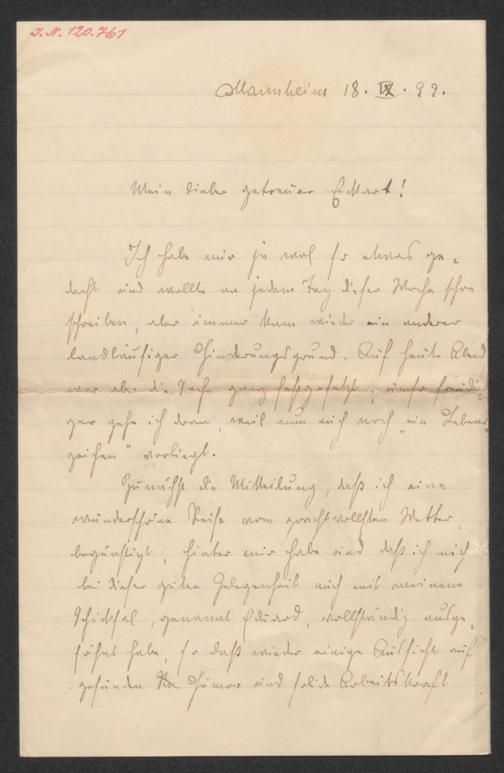 I. N. 120.761
Mannheim 18. IX. 99.
Mein lieber getreuer Eckart!
Ich habe mir ja wol so etwas ge-
dacht und wollte an jedem Tag dieser Woche schon
schreiben, aber immer kam wieder ein anderer
landläufiger Hinderungsgrund. Auf heute Abend
war aber die Sache ganz festgesetzt; umso freudi-
ger gehe ich daran, weil nun auch noch „ein Lebens-
zeichen" vorliegt.
Zunächst die Mitteilung, daß ich eine
wunderschöne Reise vom prachtvollsten Wetter
begünstigt, hinter mir habe und daß ich mich
bei dieser guten Gelegenheit auch mit meinem
Schicksal, genannt Eduard, vollständig ausge-
söhnt habe, so daß wieder einige Aussicht auf
gesunden Humor und solide Arbeitskraft